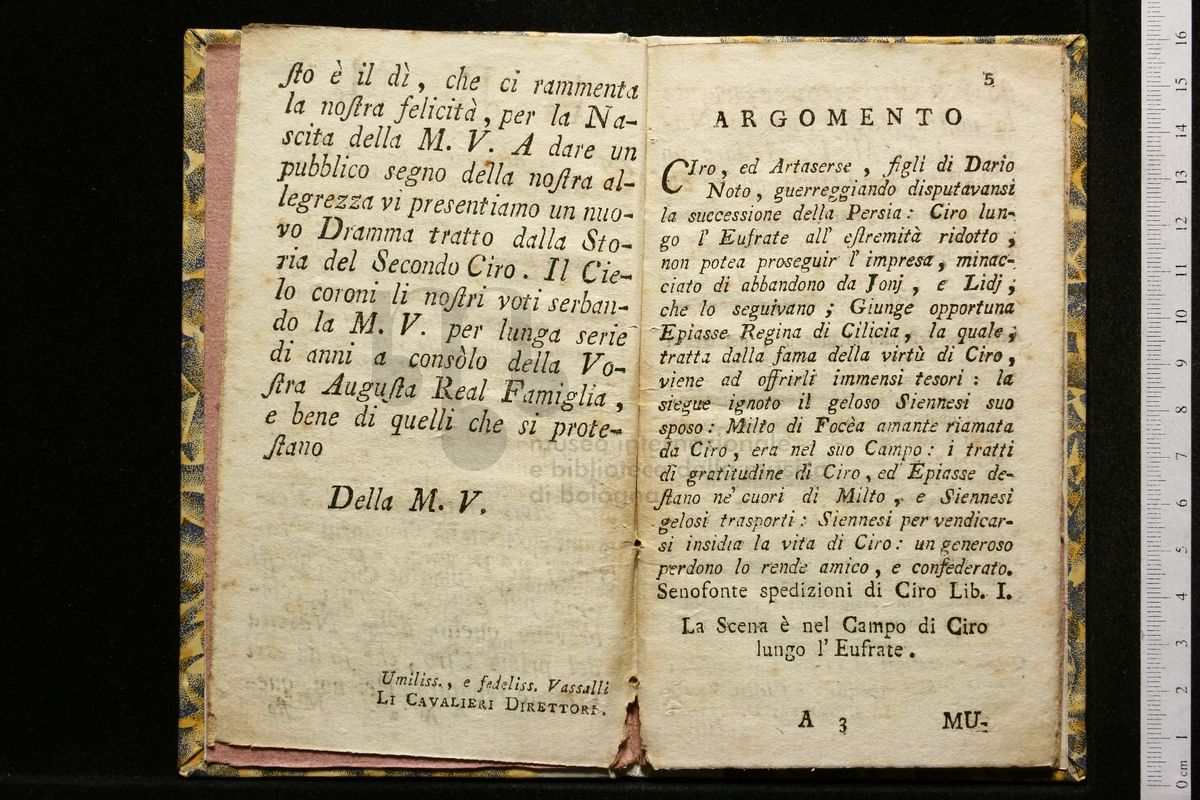 sto è il dì, che ci rammenta
la nostra felicità, per la Na-
scita della M. V. A dare un
pubblico segno della nostra al-
legrezza vi presentiamo un nuo-
vo Dramma tratto dalla Sto-
ria del Secondo Ciro. Il Cie-
lo coroni li nostri voti serban-
do la M. V. per lunga serie
di anni a consòlo della Vo-
stra Augusta Real Famiglia,
e bene di quelli che si prote-
stano
Della M. V.
Umiliss., e fedeliss. Vassalli
LI CAVALIERI DIRETTORI.
5
ARGOMENTO
CIro, ed Artaserse, figli di Dario
Noto, guerreggiando disputavansi
la successione della Persia: Ciro lun-
go l'Eufrate all' estremità ridotto,
non potea proseguir l'impresa, minac-
ciato di abbandono da Jonj, e Lidj;
che lo seguivano; Giunge opportuna
Epiasse Regina di Cilicia, la quale,
tratta dalla fama della virtù di Ciro,
viene ad offrirli immensi tesori: la
siegue ignoto il geloso Siennesi suo
sposo: Milto di Focèa amante riamata
da Ciro, era nel suo Campo: i tratti
di gratitudine di Ciro, ed Epiasse de-
stano ne' cuori di Milto, e Siennesi
gelosi trasporti: Siennesi per vendicar-
si insidia la vita di Ciro: un generoso
perdono lo rende amico, e confederato.
Senofonte spedizioni di Ciro Lib. I.
La Scena è nel Campo di Ciro
lungo l'Eufrate.
A 3
MU-
museo internazionale
e biblioteca della musica
di bologna
0 cm 1 2 3 4 5 6 7 8 9 10 11 12 13 14 15 16